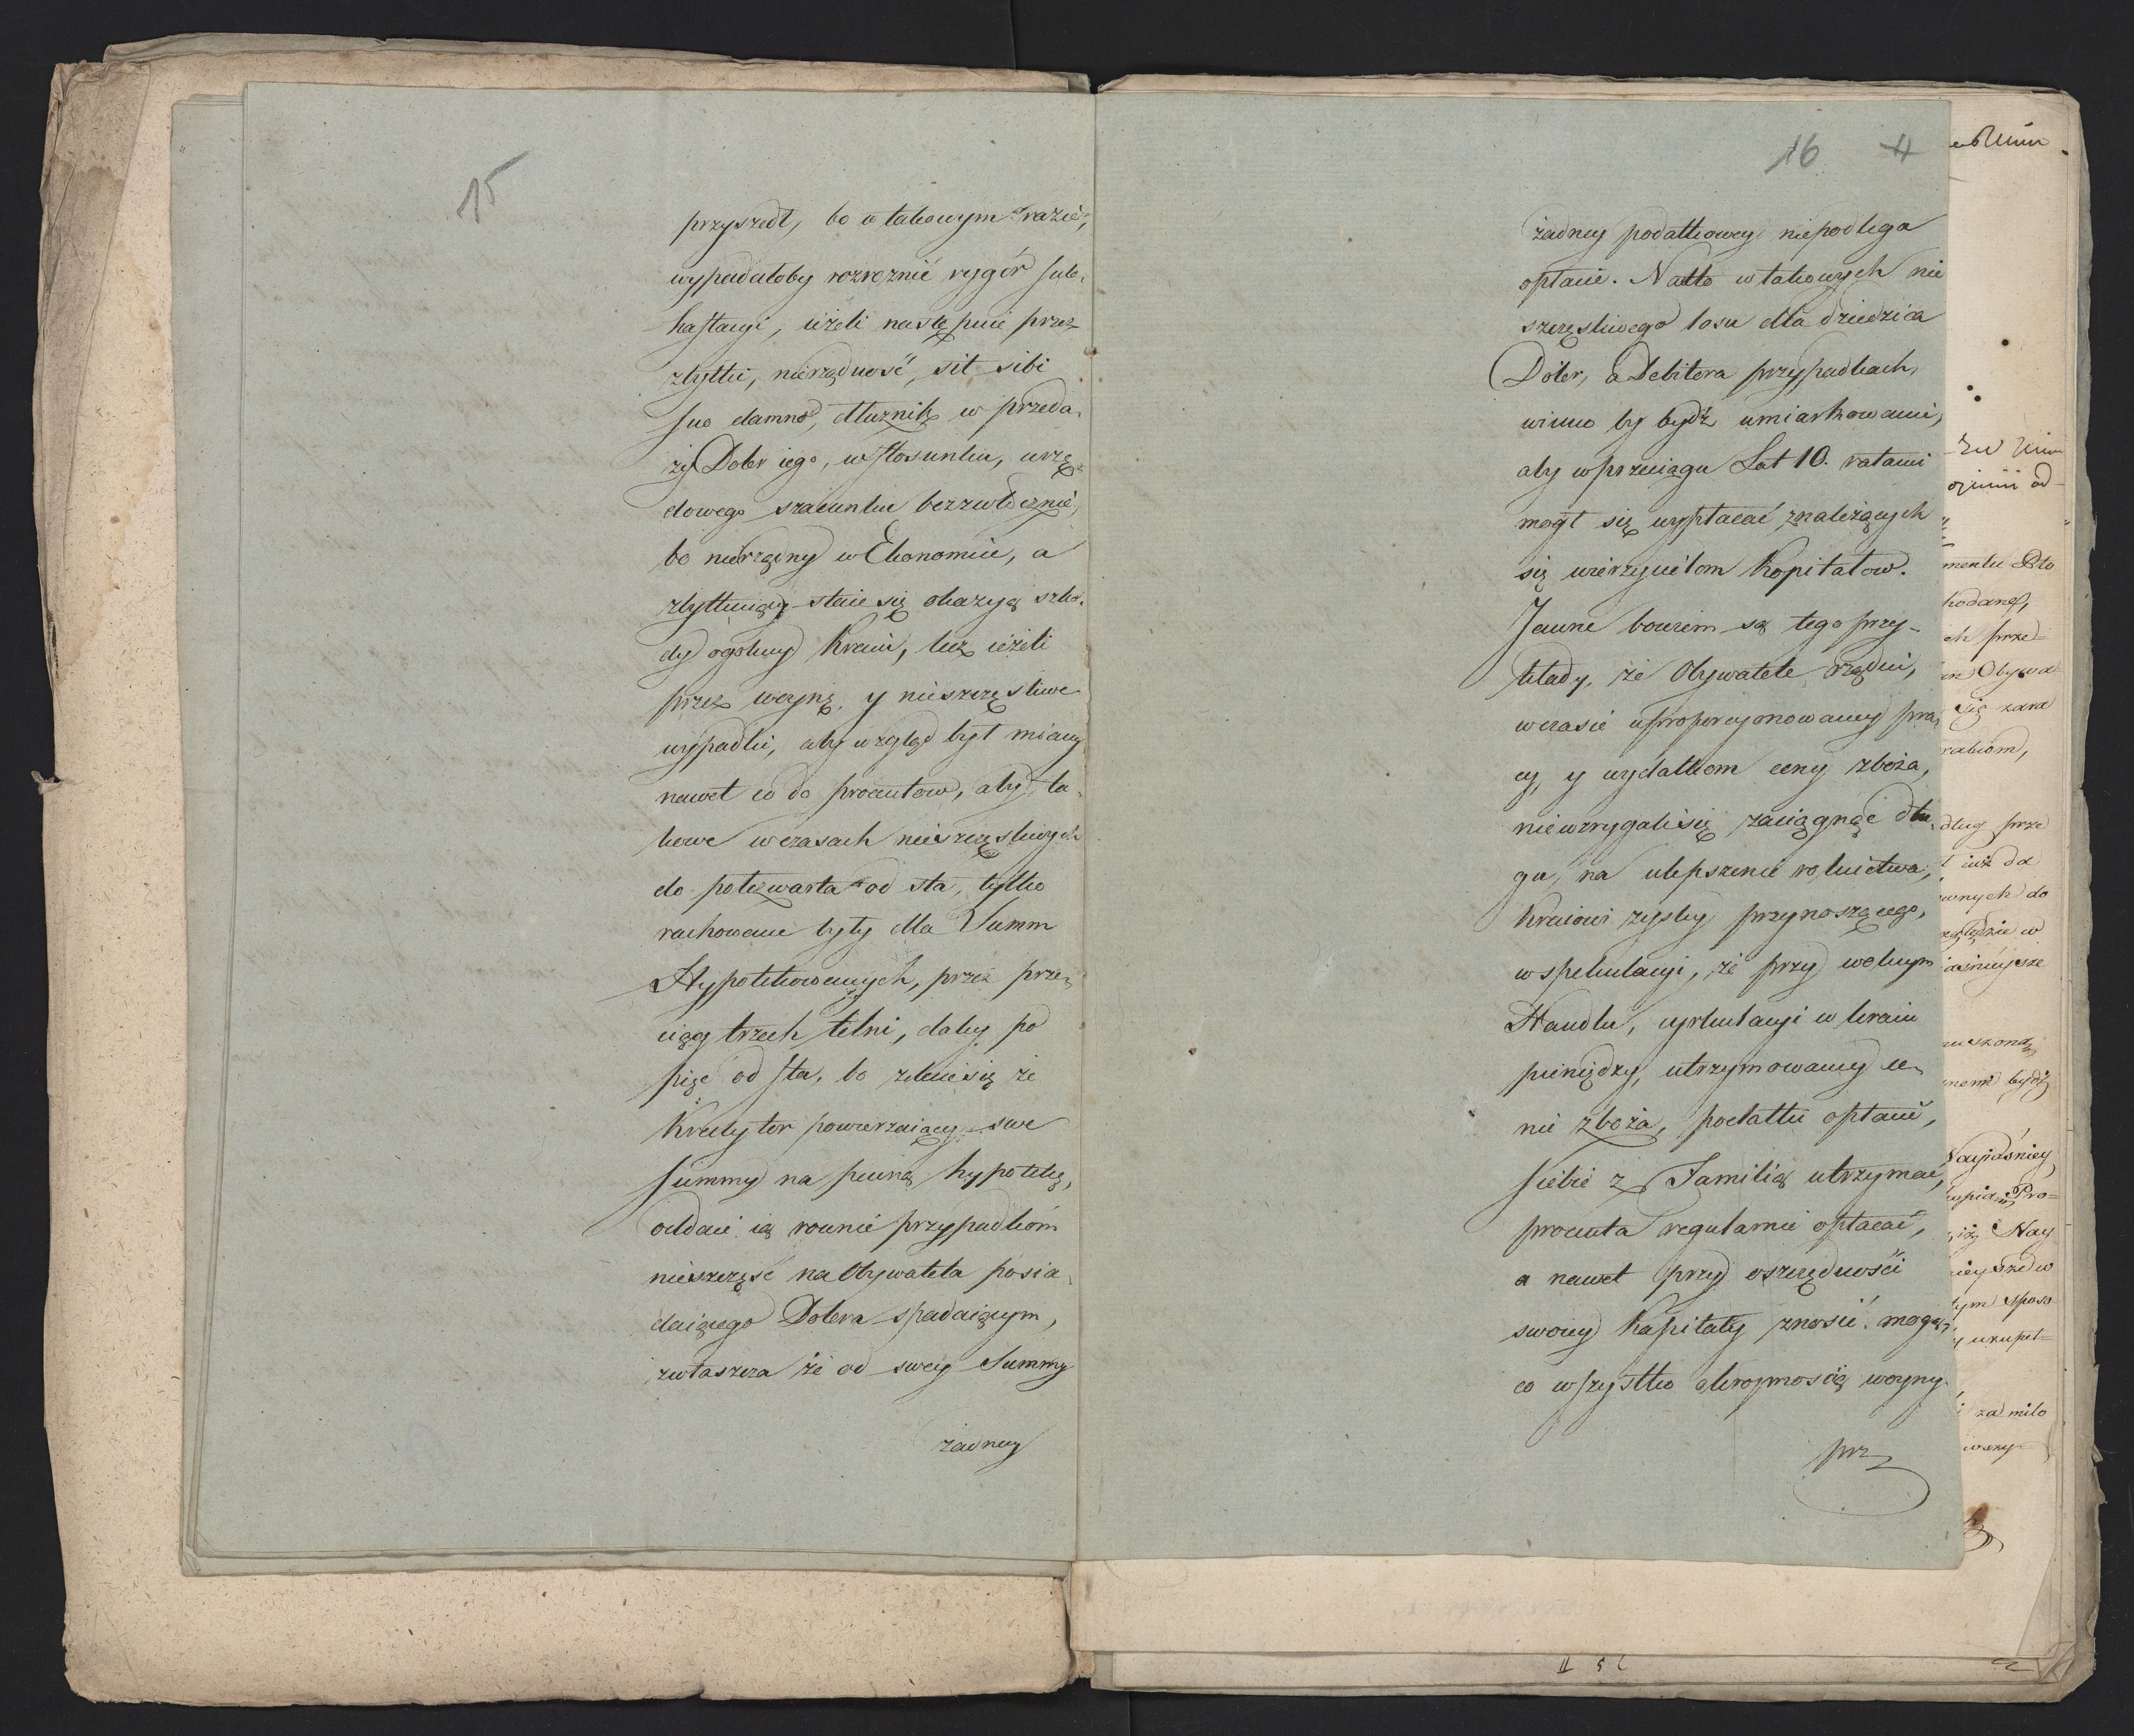 15
przyszedł, bo w takowym razie,
wypadałoby rozroznić rygór sub-
hastacyi, ieżeli nastę puie przez
zbytki, nierządność, sit sibi
suo damno, dłużnik w przeda-
ży Dobr iego, w stosunku, urzę-
dowego szacunku bezzwłocznie,
bo nierządny w Ekonomice, a
zbytkuiący staie się okazyą szko-
dy ogolney Kraiu, lecz ieżeli
przez woynę, y nieszczęśliwe
wypadki, aby wzgląd był miany
nawet co do procentow, aby ta-
kowe w czasach nieszczęśliwych
do połczwarta od sta, tylko
rachowane były dla Summ
Hypotekowanych, przez prze-
ciąg trzech letni, daley po
pięć od sta, bo zdaie się że
Kredytor powierzaiący swe
Summy na pewną hypotekę,
oddaie ią rownie przypadkom
nieszczęść na Obywatela posia-
daiącego Dobra spadaiącym,
zwłaszcza że od swey Summy
żadney
16 4
żadney podatkowey niepodlega
opłacie. Nadto w takowych nie
szczęśliwego losu dla dziedzica
Dóbr, a Debitora przypadkach,
winno by bydź umiarkowanie,
aby w przeciągu Lat 10. ratami
mogł się wypłacać znależących
się wierzycielom Kapitałow.
Jawne bowiem są tego przy-
kłady, że Obywatele rządni,
w czasie uproporcyonowaney pra-
cy, y wydatkom ceny zboża,
niewzrygali się zaciągnąć dłu-
gu, na ulepszenie rolnictwa,
Kraiowi zyski przynoszącego,
w spekulacyi, że przy wolnym
Handlu, cyrkulacyi w kraiu
pieniędzy, utrzymowaney ce-
nie zboża, podatki opłacić,
siebie z Familią utrzymać,
procenta regularnie opłacać,
a nawet przy oszczędności
swoiey Kapitały znosić mogą,
co wszystko okropnością woyny
prz